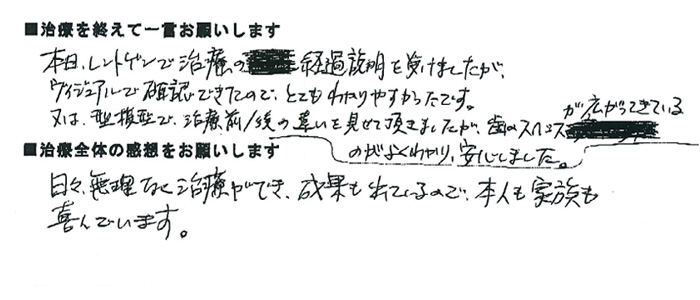 ■治療を終えて一言お願いします
本日、レントゲンで治療の経過説明を受けましたが、
ヴィジュアルで確認できたので、とてもわかりやすかったです。
又は、模型で、治療前/後の違いを見せて頂きましたが、歯のスペースが広がってきている
のがよくわかり、安心しました。
■治療全体の感想をお願いします
日々、無理なく治療ができ、成果も出ているので、本人も家族も
喜んでいます。